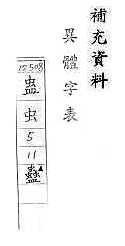 補充資料
異體字表
12508
蛊
虫
5
11
蠱